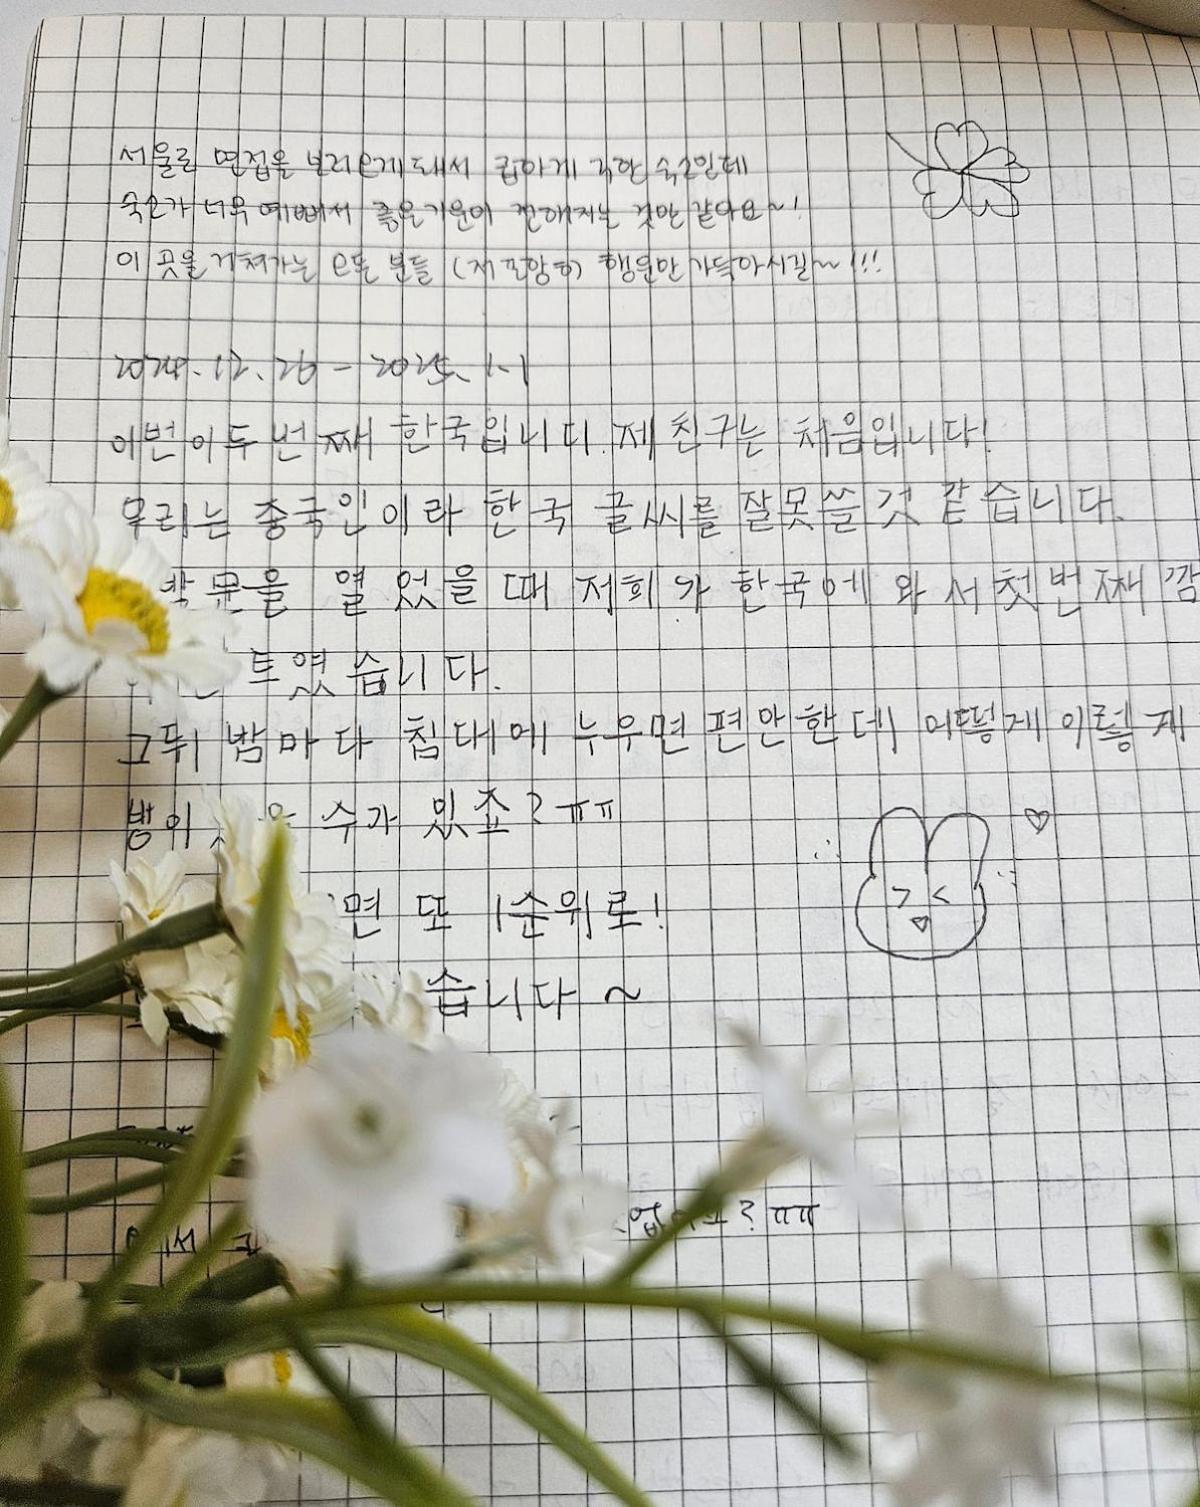 서울로 면접을 보러오게 돼서 급하게 구한 숙소인데
숙소가 너무 예뻐서 좋은기운이 전해지는 것만 같아요~!
이 곳을 거쳐가는 모든 분들 (저 포함해) 행운만 가득하시길~!!!
2024.12.26 - 2025.1.1
이번이 두 번째 한국입니다. 제 친구는 처음입니다!
우리는 중국인이라 한국 글씨를 잘못쓸것 같습니다.
문을 열었을때 저희가 한국에 와서 첫번째 깜
트였습니다.
그뒤 밤마다 침대에 누우면 편안한데 어떻게 이렇게
방이 수가 있죠? ㅠㅠ
면 또 1순위로!
습니다 ~
ㅠㅠ